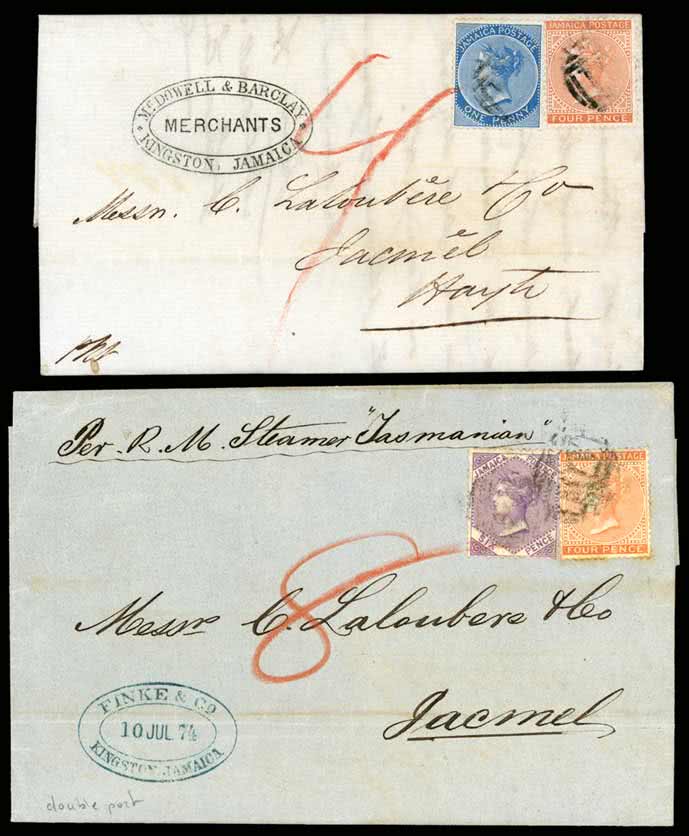 JAMAICA POSTAGE
ONE PENNY
JAMAICA POSTAGE
FOUR PENCE
McDOWELL & BARCLAY
MERCHANTS
KINGSTON, JAMAICA
4
Messrs. C. Laloubère & Co
Jacmél
Hayti
Per. R. M. Steamer "Tasmanian"
JAMAICA
SIX PENCE
JAMAICA POSTAGE
FOUR PENCE
8
Messrs C. Laloubere & Co
Jacmel
FINKE & CO
10 JUL 74
KINGSTON, JAMAICA
double port